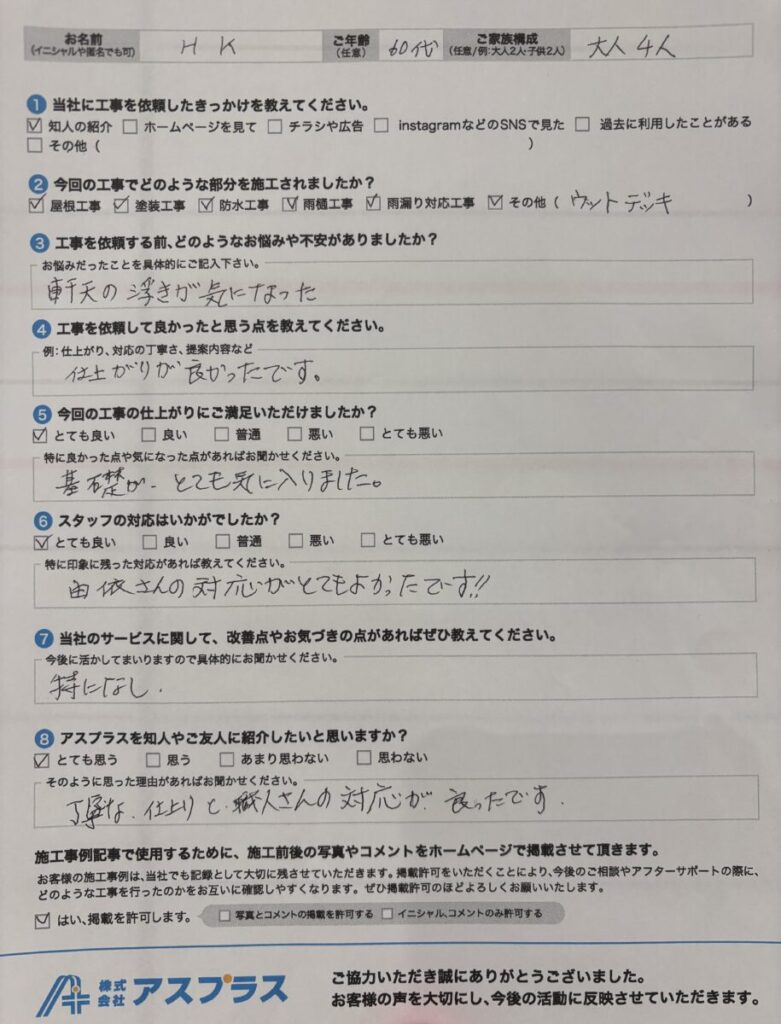 お名前 (イニシャルや匿名でも可) H K ご年齢 (任意) 60代 ご家族構成 (任意/例:大人2人・子供2人) 大人4人
1 当社に工事を依頼したきっかけを教えてください。
☑ 知人の紹介 □ ホームページを見て □ チラシや広告 □ instagramなどのSNSで見た □ 過去に利用したことがある
□ その他 ( )
2 今回の工事でどのような部分を施工されましたか?
☑ 屋根工事 ☑ 塗装工事 ☑ 防水工事 ☑ 雨樋工事 ☑ 雨漏り対応工事 ☑ その他 ( ウットデッキ )
3 工事を依頼する前、どのようなお悩みや不安がありましたか?
お悩みだったことを具体的にご記入下さい。
軒天の浮きが気になった
4 工事を依頼して良かったと思う点を教えてください。
例:仕上がり、対応の丁寧さ、提案内容など
仕上がりが良かったです。
5 今回の工事の仕上がりにご満足いただけましたか?
☑ とても良い □ 良い □ 普通 □ 悪い □ とても悪い
特に良かった点や気になった点があればお聞かせください。
基礎が、とても気に入りました。
6 スタッフの対応はいかがでしたか?
☑ とても良い □ 良い □ 普通 □ 悪い □ とても悪い
特に印象に残った対応があれば教えてください。
由依さんの対応がとてもよかったでーす!!
7 当社のサービスに関して、改善点やお気づきの点があればぜひ教えてください。
今後に活かしてまいりますので具体的にお聞かせください。
特になし.
8 アスプラスを知人やご友人に紹介したいと思いますか?
☑ とても思う □ 思う □ あまり思わない □ 思わない
そのように思った理由があればお聞かせください。
丁寧な、仕上りと、職人さんの対応が良ったです.
施工事例記事で使用するために、施工前後の写真やコメントをホームページで掲載させて頂きます。
お客様の施工事例は、当社でも記録として大切に残させていただきます。掲載許可をいただくことにより、今後のご相談やアフターサポートの際に、
どのような工事を行ったのかをお互いに確認しやすくなります。ぜひ掲載許可のほどよろしくお願いいたします。
☑ はい、掲載を許可します。 □ 写真とコメントの掲載を許可する □ イニシャル、コメントのみ許可する
株式会社 アスプラス
ご協力いただき誠にありがとうございました。
お客様の声を大切にし、今後の活動に反映させていただきます。